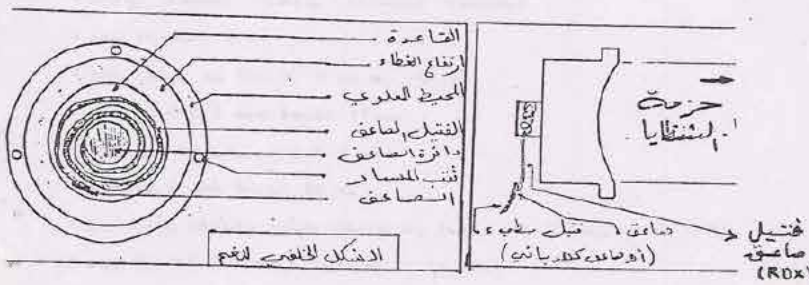 القاعدة
ارتفاع الغطاء
المحيط العلوي
الفتيل الصاعق
دائرة الصاعق
ثقب المسمار
الصاعق
الشكل الخلفي للغم
حزمة
الشظايا
صاعق فتيل بطيء
(أو صاعق كهربائي)
فتيل
صاعق
(RDX)